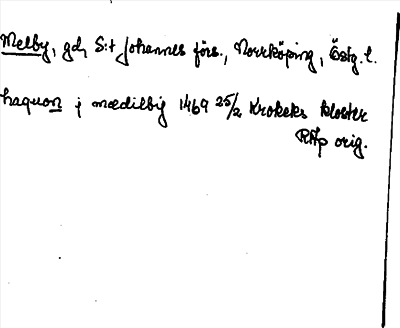 Melby, gd, S:t Johannes förs., Norrköping, Östg. l.
haquon j mædilby 1469 25/2 Krokeks kloster
RAp orig.